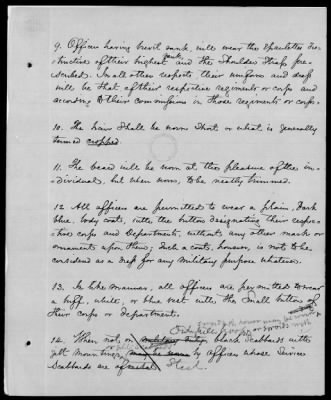 9. Officers having brevet rank, will wear the Epaulettes dis-
tinctive of their highest rank and the Shoulder Straps pre-
scribed. In all other respects, their uniform and dress
will be that of their respective regiments or corps and
according to their commission in those regiments or corps.
10. The hair shall be worn Short or what is generally
termed cropped.
11. The beard will be worn at the pleasure of the in-
dividual, but when worn, to be neatly trimmed.
12 All officers are permitted to wear a plain, dark
blue, body coats, with the button designating their respec-
tive corps and departments, without any other mark or
ornament upon them; Such a coat, however, is not to be
considered as a dress for any military purpose whatever.
13. In like manner, all officers are permitted to wear
a buff, white, or blue vest with the small button of
their corps or department.
14. When not on military duty, black Scabbards with
gilt mountings may be worn by officers whose Service
Scabbards are of Steel.